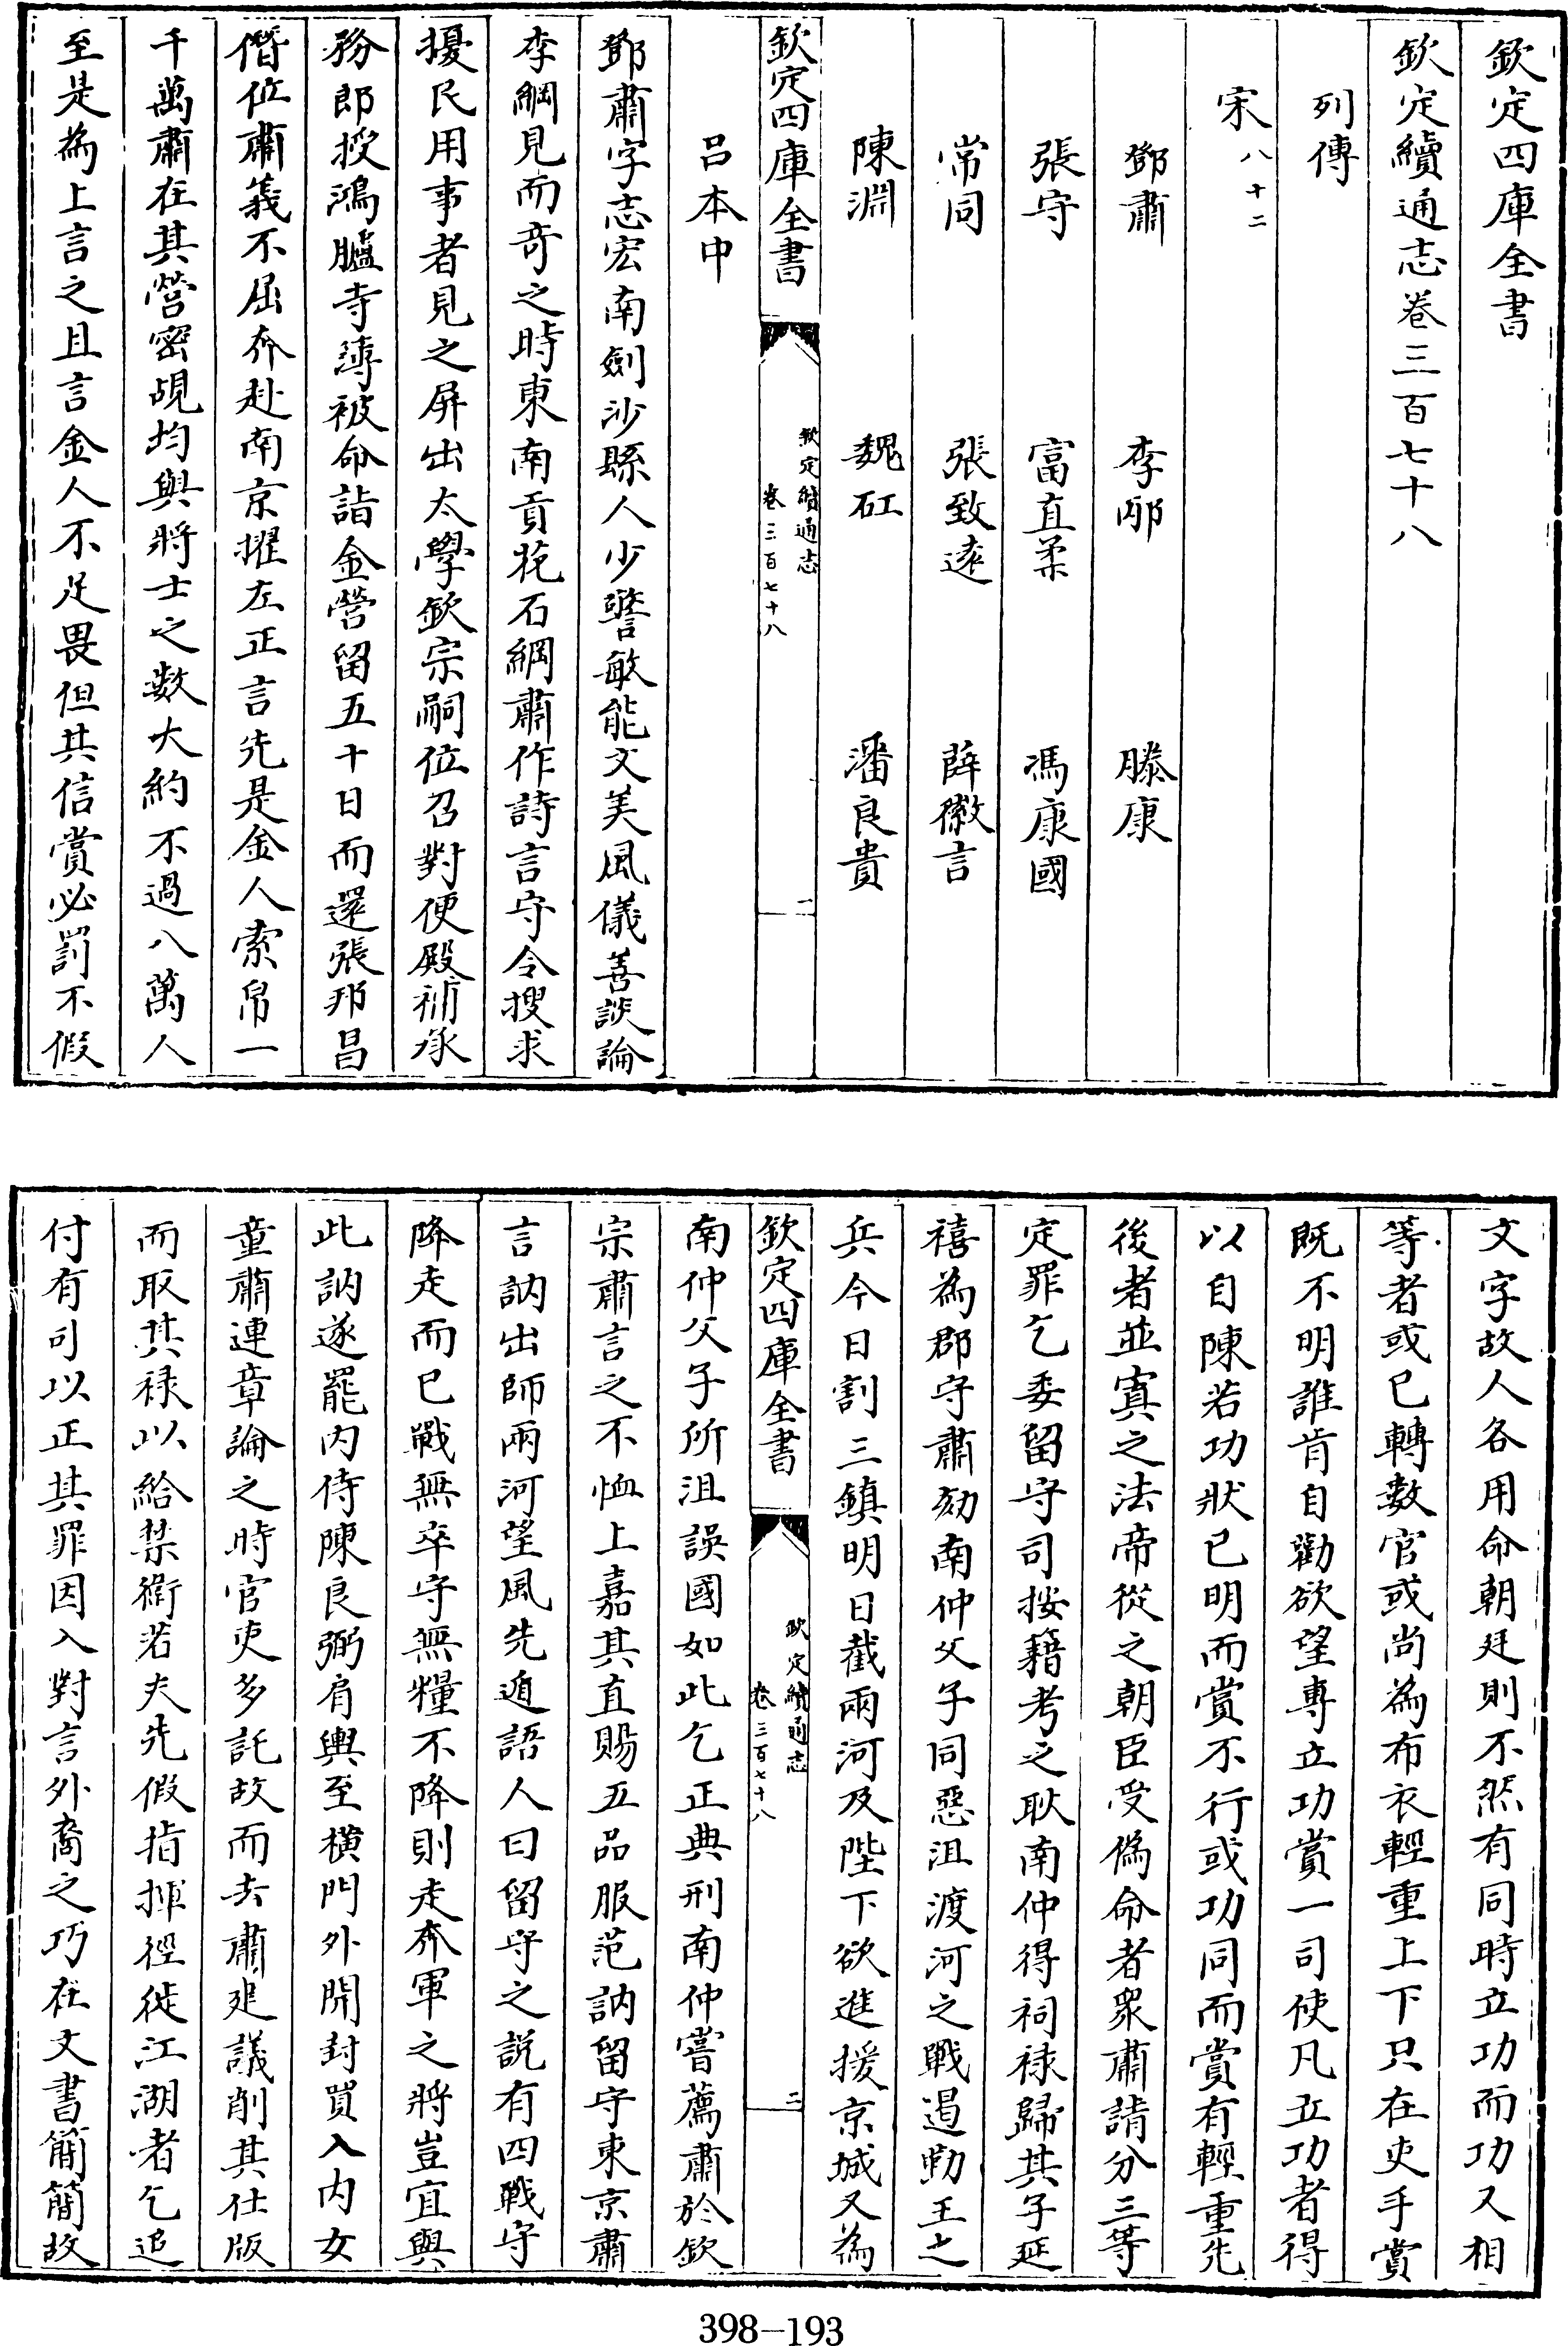 欽定四庫全書
欽定續通志卷三百七十八
列傳
宋八十二
鄧肅 李邴 滕康
張守 富直柔 馮康國
常同 張致遠 薛徽言
陳淵 魏矼 潘良貴
欽定四庫全書 欽定續通志 卷三百七十八 一
呂本中
鄧肅字志宏南劍沙縣人少警敏能文美風儀善談論
李綱見而竒之時東南貢花石綱肅作詩言守令搜求
擾民用事者見之屏出太學欽宗嗣位召對便殿補承
務郎授鴻臚寺簿被命詣金營留五十日而還張邦昌
僭位肅義不屈奔赴南京擢左正言先是金人索帛一
千萬肅在其營密覘均與將士之數大約不過八萬人
至是為上言之且言金人不足畏但其信賞必罰不假
文字故人各用命朝廷則不然有同時立功而功又相
等者或已轉數官或尚為布衣輕重上下只在吏手賞
既不明誰肯自勸欲望專立功賞一司使凡立功者得
以自陳若功狀已明而賞不行或功同而賞有輕重先
後者並寘之法帝從之朝臣受偽命者衆肅請分三等
定罪乞委留守司按籍考之耿南仲得祠禄歸其子延
禧為郡守肅劾南仲父子同惡沮渡河之戰遏勤王之
兵今日割三鎮明日截兩河及陛下欲進援京城又為
欽定四庫全書 欽定續通志 卷三百七十八 二
南仲父子所沮誤國如此乞正典刑南仲嘗薦肅於欽
宗肅言之不恤上嘉其直賜五品服范訥留守東京肅
言訥出師兩河望風先遁語人曰留守之説有四戰守
降走而已戰無卒守無糧不降則走奔軍之將豈宜與
此訥遂罷内侍陳良弼肩輿至横門外開封買入内女
童肅連章論之時官吏多託故而去肅建議削其仕版
而取其禄以給禁衛若夫先假指揮徑徙江湖者乞追
付有司以正其罪因入對言外裔之巧在文書簡簡故
398-193